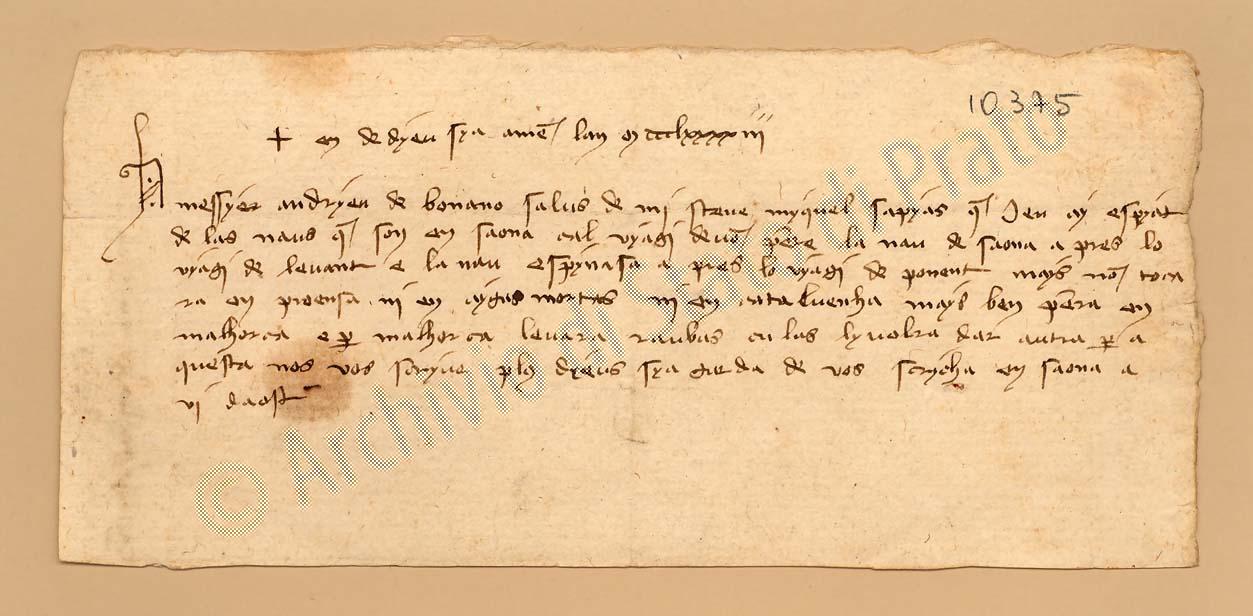 10375
+ en de dyeu sya amen lan m ccclxxxxiiii
A messyer andryeu de bonano saluts de mi steve myquel sapyas q ieu ay espyat
de las naus q son en saona cal vyagi deuon pere la nau de saona a pres lo
vyagi de levant e la nau espynasa a pres lo vyagi de ponent mays non toca
ra en proensa ni en aygas mortas ni en cataluenha mays ben pera en
malhorca e per malhorca levara raubas en las lyvolra dar autra per a
questa nos vos scryve plus dyeus sya garda de vos scrycha en saona a
vj daost
© Archivio di Stato di Prato